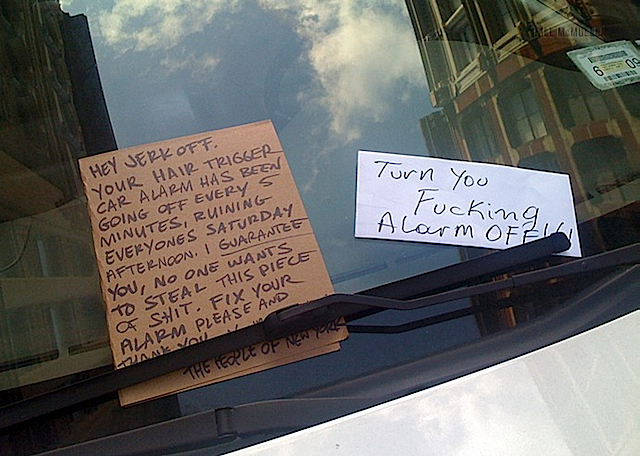 HEY JERK OFF.
YOUR HAIR TRIGGER
CAR ALARM HAS BEEN
GOING OFF EVERY 5
MINUTES, RUINING
EVERYONE'S SATURDAY
AFTERNOON. I GUARANTEE
YOU, NO ONE WANTS
TO STEAL THIS PIECE
OF SHIT. FIX YOUR
ALARM PLEASE AND
THANK YOU.
THE PEOPLE OF NEW YORK
Turn You
Fucking
Alarm OFF!!!
6 09